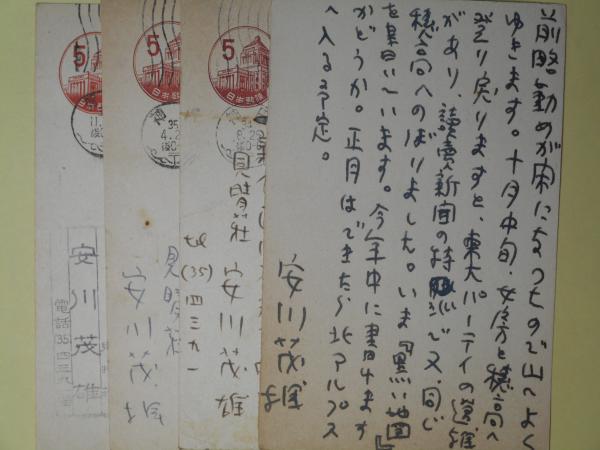 前略 勤めが閑になつたので山へよく
ゆきます。十月中旬、女房と穂高へ
登り戻りますと、東大パーティの遭難
があり、読売新聞の特派で又、同じ
穂高へのぼりました。いま『黒い地図』
を書いています。今年中に書けます
かどうか。正月はできたら北アルプス
へ入る予定。
安川茂雄
5
日本郵便
見晴荘
安川茂雄
tel
(35)四三九一
5
日本郵便
35
見晴荘
安川茂雄
5
日本郵便
安川茂雄
電話